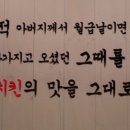 적 아버지께서 월급날이면
가지고 오셨던 그때를
치킨의 맛을 그대로